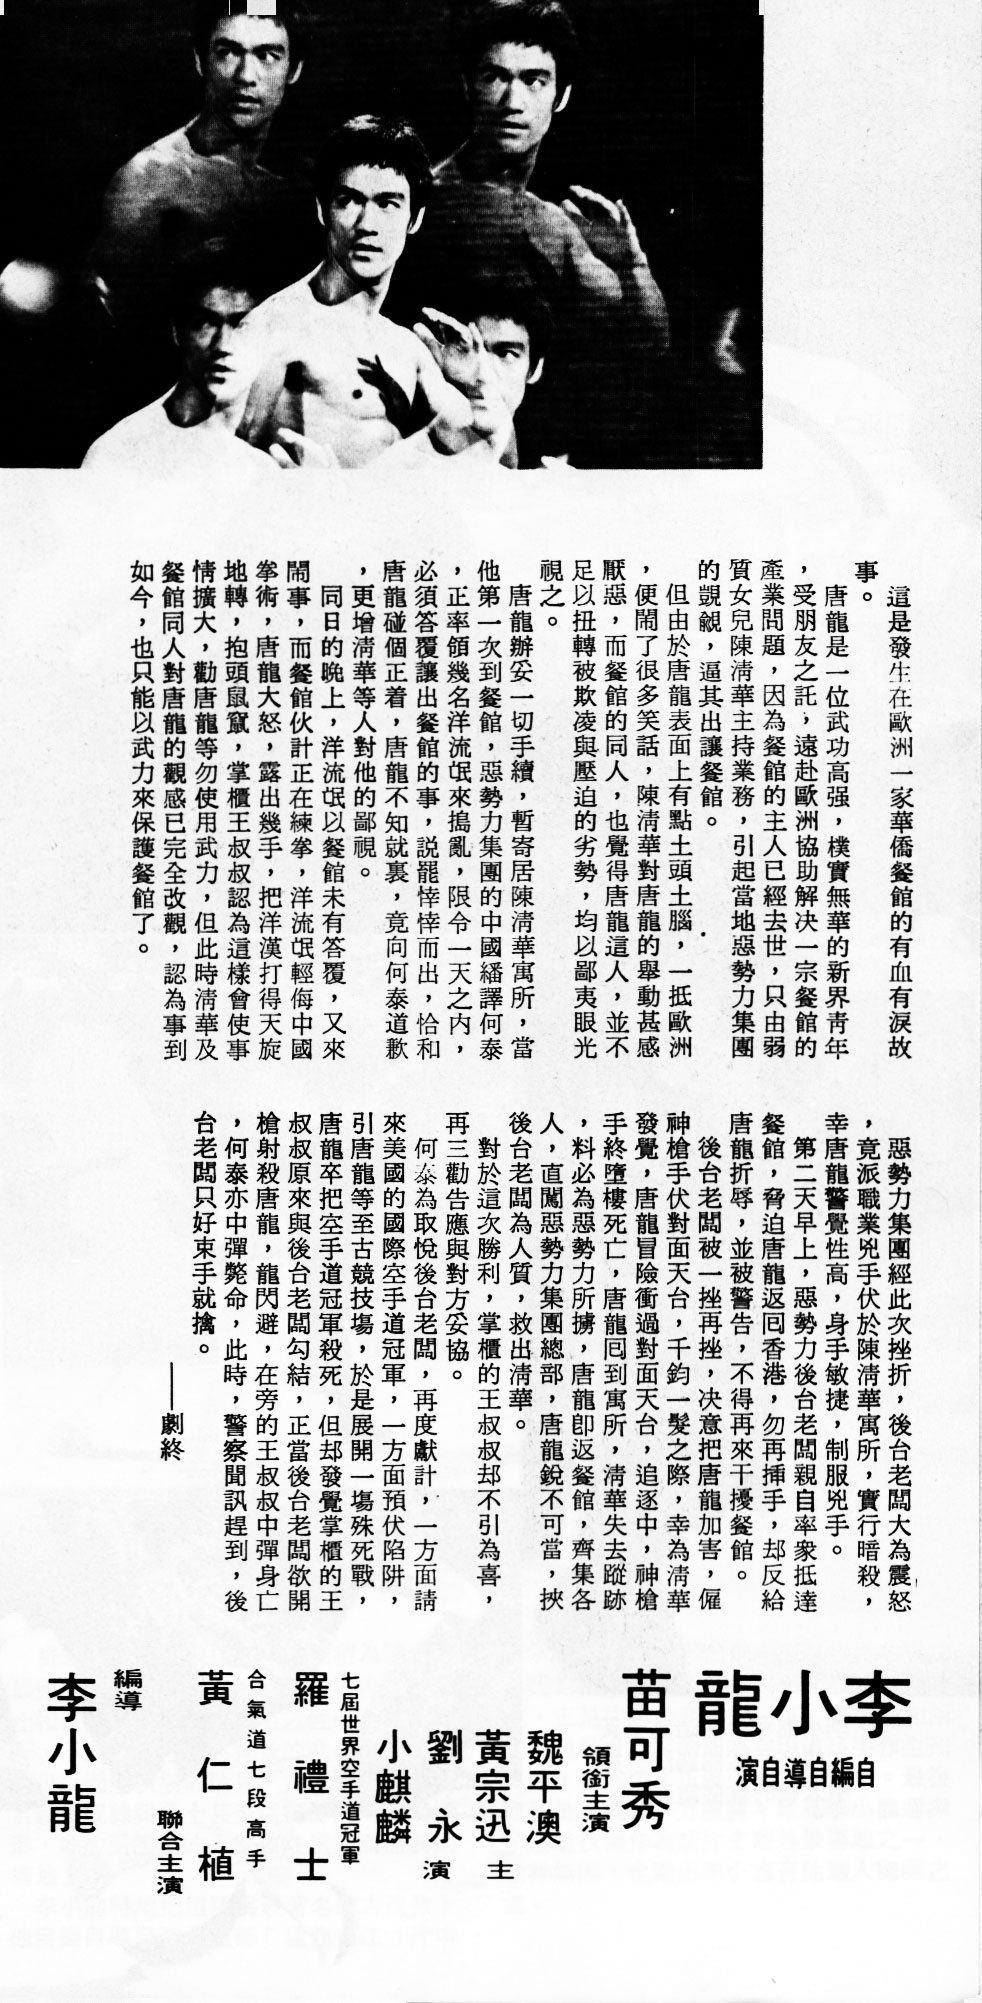 這是發生在歐洲一家華僑餐館的有血有淚故
事。
唐龍是一位武功高强，樸實無華的新界靑年
，受朋友之託，遠赴歐洲協助解決一宗餐館的
產業問題，因為餐館的主人已經去世，只由弱
質女兒陳淸華主持業務，引起當地惡勢力集團
的覬覦，逼其出讓餐館。
但由於唐龍表面上有點土頭土腦，一抵歐洲
，便閙了很多笑話，陳淸華對唐龍的舉動甚感
厭惡，而餐館的同人，也覺得唐龍這人，並不
足以扭轉被欺凌與壓迫的劣勢，均以鄙夷眼光
視之。
唐龍辦妥一切手續，暫寄居陳淸華寓所，當
他第一次到餐館，惡勢力集團的中國繙譯何泰
，正率領幾名洋流氓來搗亂，限令一天之内，
必須答覆讓出餐館的事，説罷悻悻而出，恰和
唐龍碰個正着，唐龍不知就裏，竟向何泰道歉
，更增淸華等人對他的鄙視。
同日的晚上，洋流氓以餐館未有答覆，又來
閙事，而餐館伙計正在練拳，洋流氓輕侮中國
拳術，唐龍大怒，露出幾手，把洋漢打得天旋
地轉，抱頭鼠竄，掌櫃王叔叔認為這樣會使事
情擴大，勸唐龍等勿使用武力，但此時淸華及
餐館同人對唐龍的觀感已完全改觀，認為事到
如今，也只能以武力來保護餐館了。
惡勢力集團經此次挫折，後台老闆大為震怒
，竟派職業兇手伏於陳淸華寓所，實行暗殺，
幸唐龍警覺性高，身手敏捷，制服兇手。
第二天早上，惡勢力後台老闆親自率衆抵達
餐館，脅迫唐龍返囘香港，勿再揷手，却反給
唐龍折辱，並被警告，不得再來干擾餐館。
後台老闆被一挫再挫，決意把唐龍加害，僱
神槍手伏對面天台，千鈞一髮之際，幸為淸華
發覺，唐龍冒險衝過對面天台，追逐中，神槍
手終墮樓死亡，唐龍囘到寓所，淸華失去蹤跡
，料必為惡勢力所擄，唐龍卽返餐館，齊集各
人，直闖惡勢力集團總部，唐龍銳不可當，挾
後台老闆為人質，救出淸華。
對於這次勝利，掌櫃的王叔叔却不引為喜，
再三勸告應與對方妥協。
何泰為取悅後台老闆，再度獻計，一方面請
來美國的國際空手道冠軍，一方面預伏陷阱，
引唐龍等至古競技場，於是展開一場殊死戰，
唐龍卒把空手道冠軍殺死，但却發覺掌櫃的王
叔叔原來與後台老闆勾結，正當後台老闆欲開
槍射殺唐龍，龍閃避，在旁的王叔叔中彈身亡
，何泰亦中彈斃命，此時，警察聞訊趕到，後
台老闆只好束手就擒。
——劇終
李小龍
自編自導自演
苗可秀
領銜主演
魏平澳
黃宗迅
劉永
小麒麟
主演
七屆世界空手道冠軍
羅禮士
合氣道七段高手
黃仁植
聯合主演
編導
李小龍